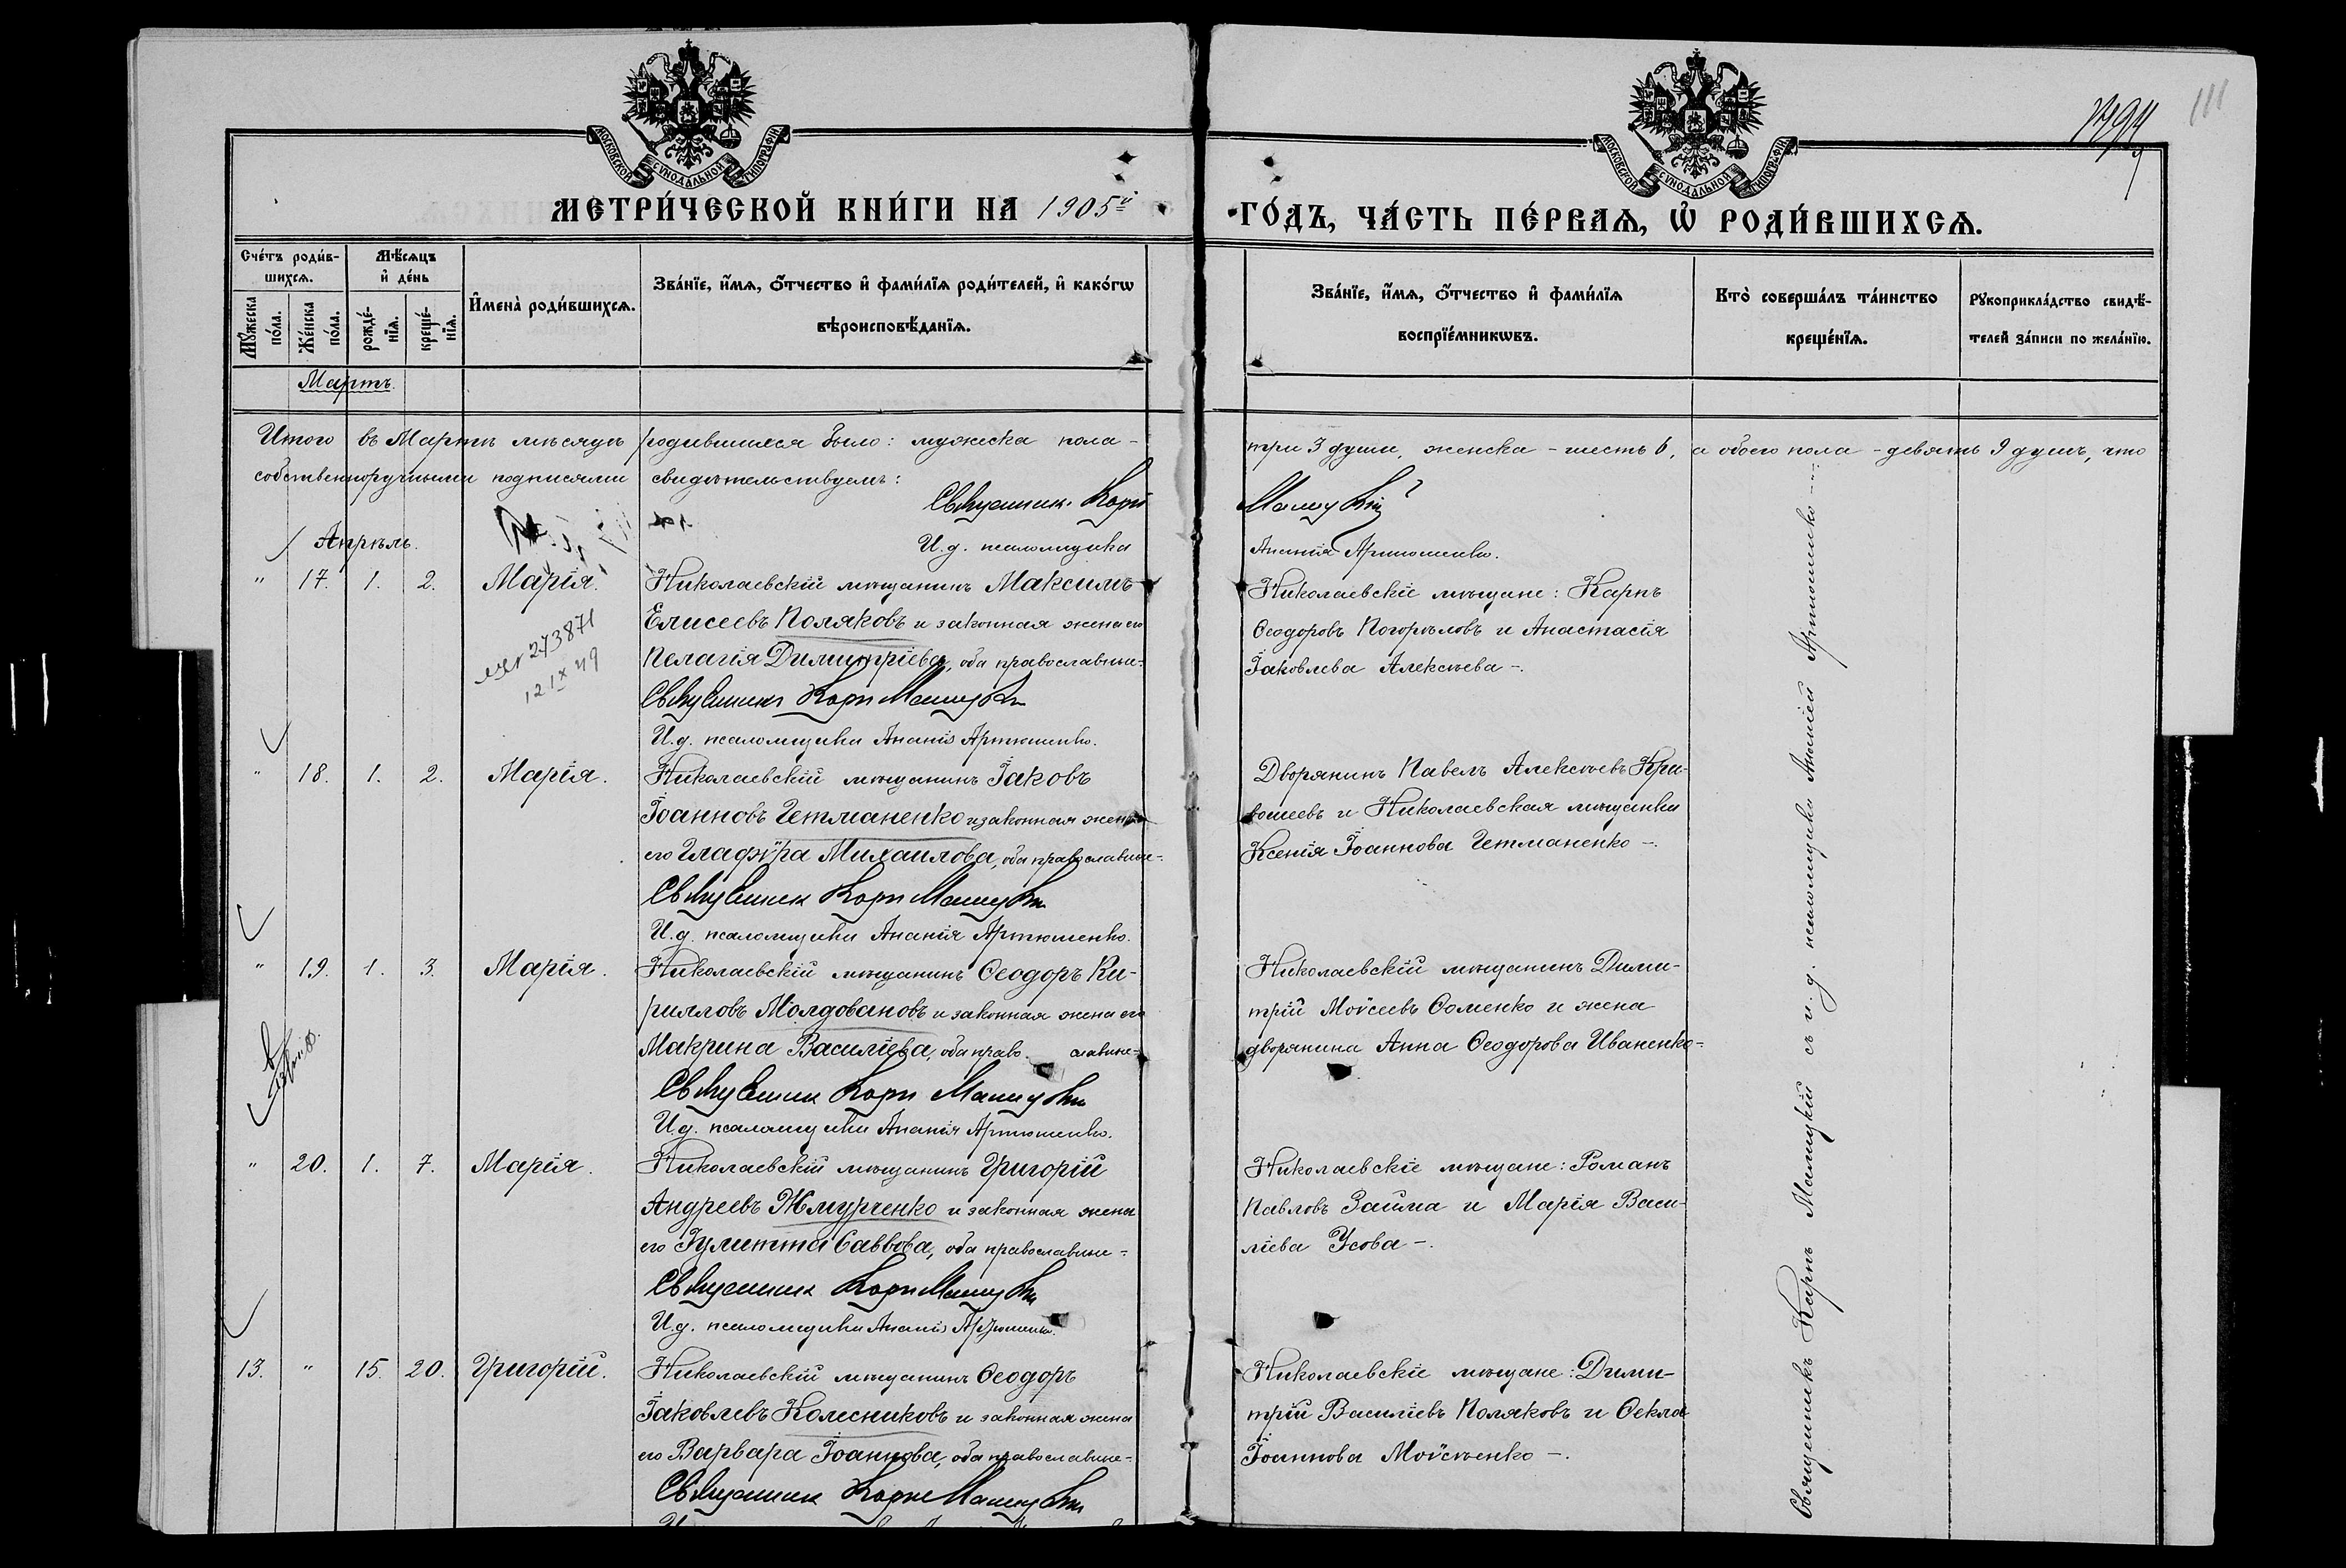 111
МОСКОВСКОЙ СѴНОДАЛЬНОЙ ТИПОГРАФІИ
МОСКОВСКОЙ СѴНОДАЛЬНОЙ ТИПОГРАФІИ
МЕТРИ́ЧЕСКОЙ КНИ́ГИ НА 1905й
ГО́ДЪ, ЧА́СТЬ ПЕ́РВАѦ, Ѡ҆ РОДИ́ВШИХСѦ.
Сче́тъ роди́в-
шихсѧ.
Мѣ́сѧцъ
и҆ де́нь
Мꙋ́жеска по́ла.
Же́нска по́ла.
рожде́-
нїѧ.
креще́-
нїѧ.
И҆мена̀ роди́вшихсѧ.
Зва́нїе, и҆́мѧ, ѻ҆́тчество и҆ фами́лїѧ роди́телей, и҆ како́гѡ
вѣроисповѣ́данїѧ.
Зва́нїе, и҆́мѧ, ѻ҆́тчество и҆ фами́лїѧ
воспрїе́мникѡвъ.
Кто̀ соверша́лъ та́инство
креще́нїѧ.
Рꙋкоприкла́дство свидѣ́-
телей за́писи по жела́нїю.
Мартъ.
Итого въ Мартѣ мѣсяцѣ родившихся было: мужеска пола - три 3 души, женска - шесть 6, а обоего пола - девять 9 душъ, что
собственноручными подписями свидѣтельствуемъ:
Священникъ Карпъ Машуцкій
И. д. псаломщика Ананія Артюшенко.
Апрѣль.
" 17. 1. 2. Марія.
Николаевскій мѣщанинъ Максимъ
Елисеевъ Поляковъ и законная жена его
Пелагія Димитріева, оба православные-
Священникъ Карпъ Машуцкій
И. д. псаломщика Ананія Артюшенко.
Николаевскіе мѣщане: Карпъ
Ѳеодоровъ Погорѣловъ и Анастасія
Іаковлева Алексѣева -.
273871
12 IX 49
" 18. 1. 2. Марія.
Николаевскій мѣщанинъ Іаковъ
Іоанновъ Гетманенко и законная жена
его Глафѵра Михаилова, оба православные-
Священникъ Карпъ Машуцкій
И. д. псаломщика Ананія Артюшенко.
Дворянинъ Павелъ Алексѣевъ Кри-
вошеевъ и Николаевская мѣщанка
Ксенія Іоаннова Гетманенко -.
" 19. 1. 3. Марія.
Николаевскій мѣщанинъ Ѳеодоръ Ки-
рилловъ Молдовановъ и законная жена его
Макрина Василіева, оба право славные-
Священникъ Карпъ Машуцкій
И. д. псаломщика Ананія Артюшенко.
Николаевскій мѣщанинъ Дими-
трій Моѵсеевъ Ѳоменко и жена
дворянина Анна Ѳеодорова Иваненко-
" 20. 1. 7. Марія.
Николаевскій мѣщанинъ Григорій
Андреевъ Жмурченко и законная жена
его Іулитта Саввова, оба православные-
Священникъ Карпъ Машуцкій
И. д. псаломщика Ананія Артюшенко.
Николаевскіе мѣщане: Романъ
Павловъ Займа и Марія Васи-
ліева Усова -.
13. " 15. 20. Григорій.
Николаевскій мѣщанинъ Ѳеодоръ
Іаковлевъ Колесниковъ и законная жена
его Варвара Іоаннова, оба православные-
Священникъ Карпъ Машуцкій
Николаевскіе мѣщане: Дими-
трій Василіевъ Поляковъ и Ѳекла
Іоаннова Моѵсѣенко -.
Священникъ Карпъ Машуцкій съ и. д. псаломщика Ананіей Артюшенко -